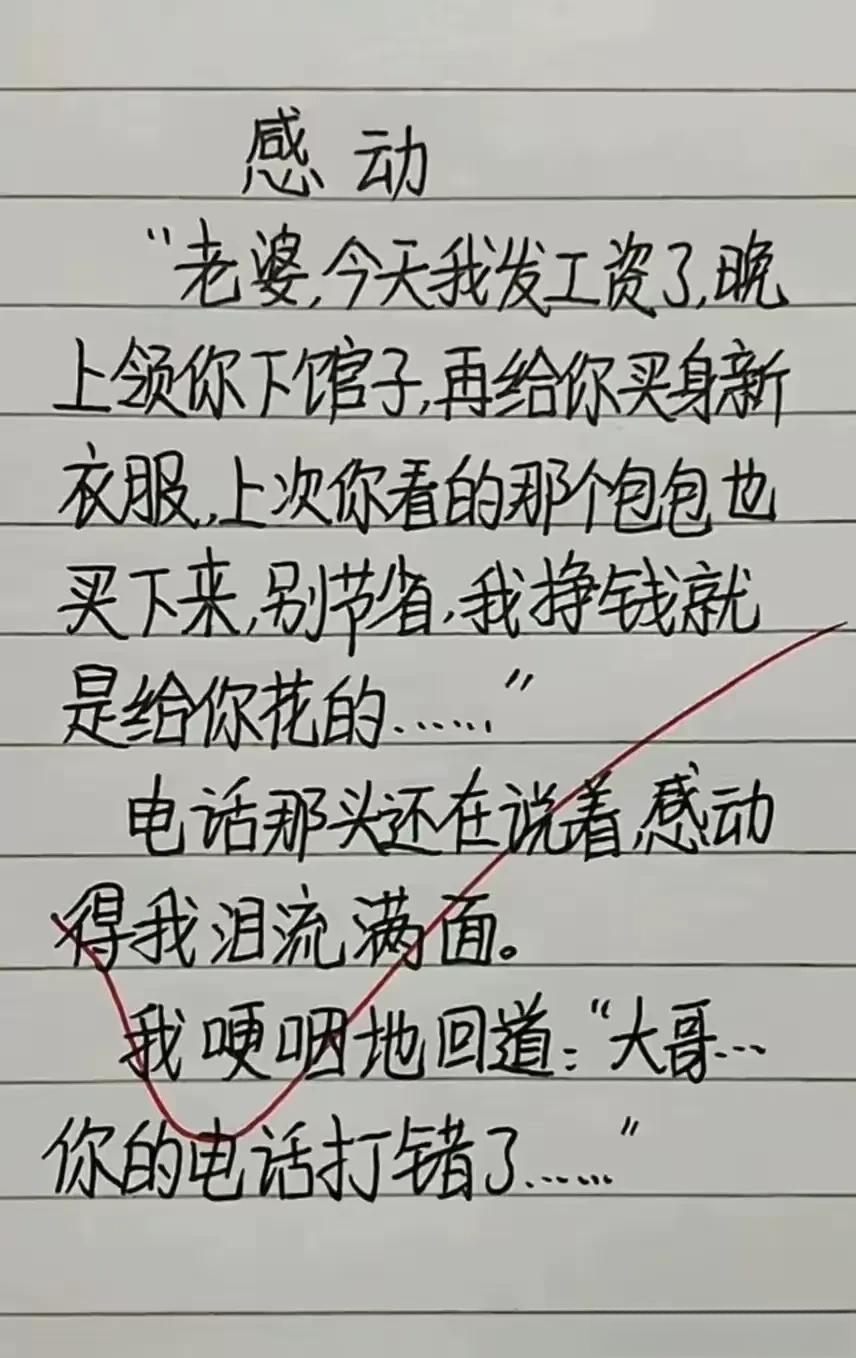 感动
“老婆,今天我发工资了,晚
上领你下馆子,再给你买身新
衣服,上次你看的那个包包也
买下来,别节省,我挣钱就
是给你花的……”
电话那头还在说着,感动
得我泪流满面。
我哽咽地回道:“大哥…
你的电话打错了……”